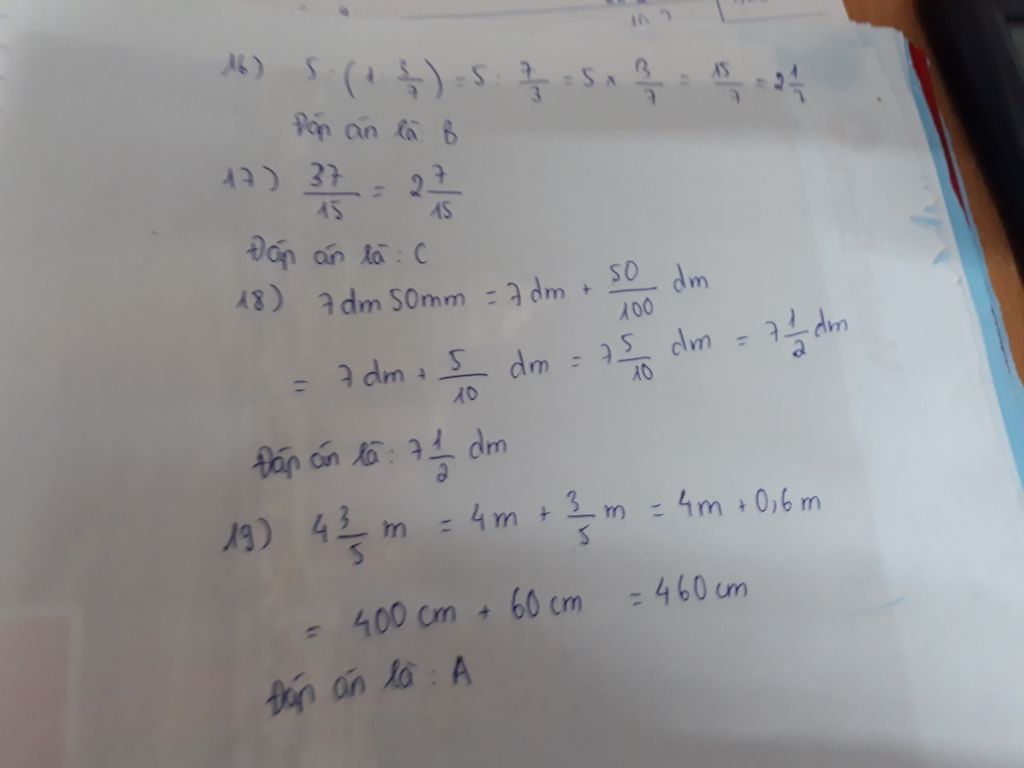 16) 5 : (1 : 3/7) = 5 : 7/3 = 5 × 3/7 = 15/7 = 2 1/7
Đáp án là: B
17) 37/15 = 2 7/15
Đáp án là: C
18) 7dm 50mm = 7dm + 50/100 dm
= 7dm + 5/10 dm = 7 5/10 dm = 7 1/2 dm
Đáp án là: 7 1/2 dm
19) 4 3/5 m = 4m + 3/5 m = 4m + 0,6m
= 400 cm + 60 cm = 460 cm
Đáp án là: A